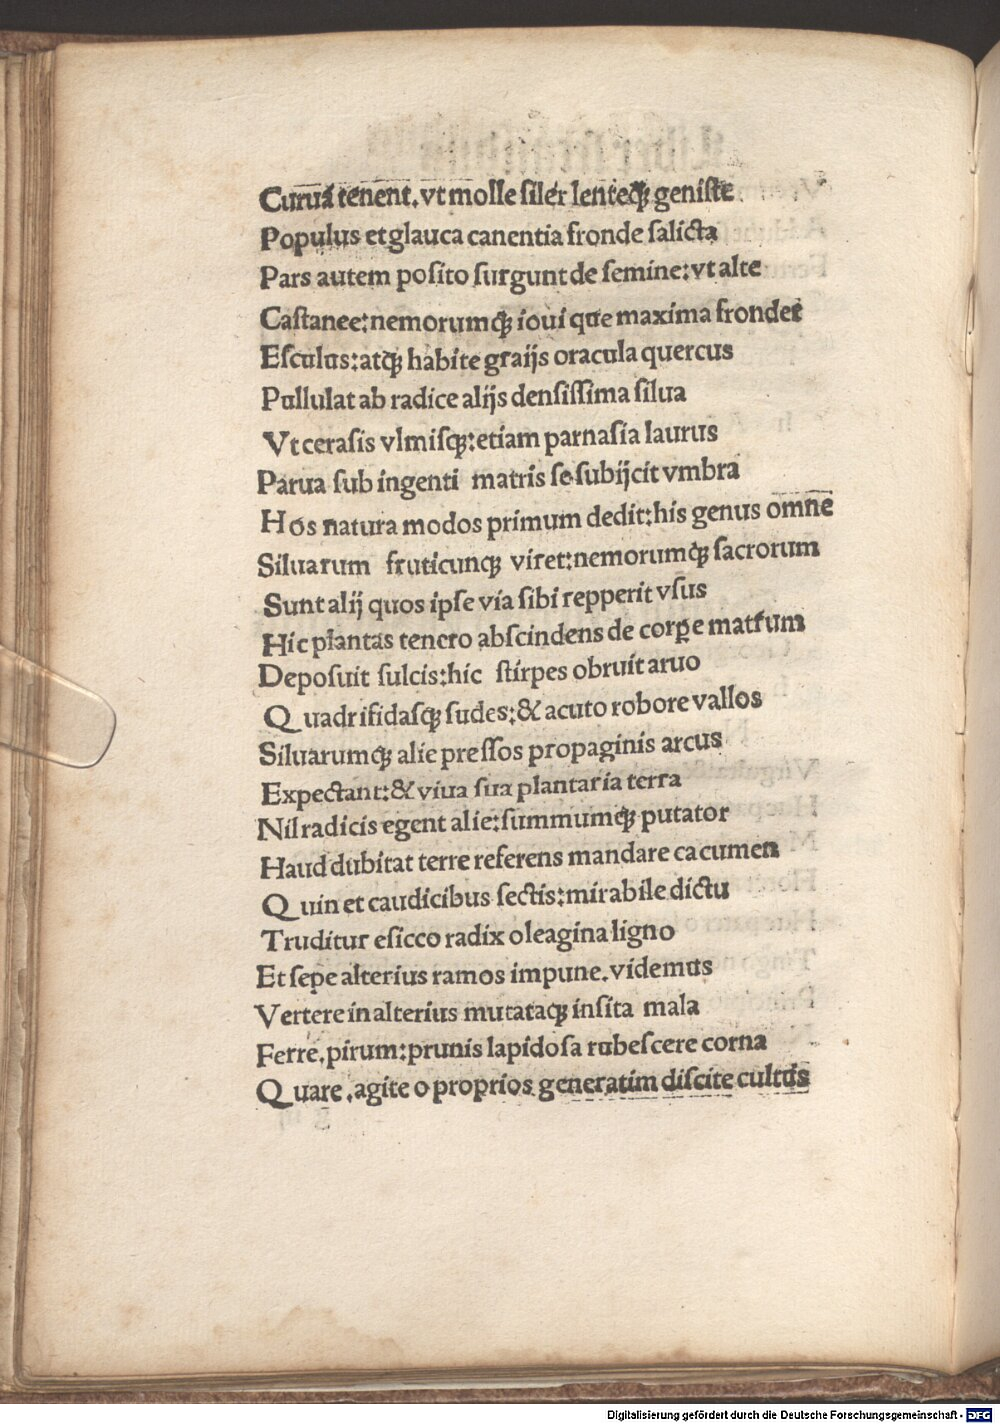 Curuā tenent. vt molle siler lenteqꝫ geniste
Populus et glauca canentia fronde salicta
Pars autem posito surgunt de semine: vt alte
Castanee: nemorumqꝫ ioui que maxima frondet
Esculus: atqꝫ habite graijs oracula quercus
Pullulat ab radice alijs densissima silua
Vt cerasis vlmisqꝫ: etiam parnasia laurus
Parua sub ingenti matris se subijcit vmbra
Hos natura modos primum dedit: his genus omne
Siluarum fruticunqꝫ viret: nemorumqꝫ sacrorum
Sunt alij quos ipse via sibi repperit vsus
Hic plantas tenero abscindens de corꝑe matrum
Deposuit sulcis: hic stirpes obruit aruo
Quadrifidasqꝫ sudes: & acuto robore vallos
Siluarumqꝫ alie pressos propaginis arcus
Expectant: & viua sua plantaria terra
Nil radicis egent alie: summumqꝫ putator
Haud dubitat terre referens mandare cacumen
Quin et caudicibus sectis: mirabile dictu
Truditur esicco radix oleagina ligno
Et sepe alterius ramos impune. videmus
Vertere in alterius mutataqꝫ insita mala
Ferre. pirum: prunis lapidosa rubescere corna
Quare. agite o proprios generatim discite cultus
Digitalisierung gefördert durch die Deutsche Forschungsgemeinschaft - DFG